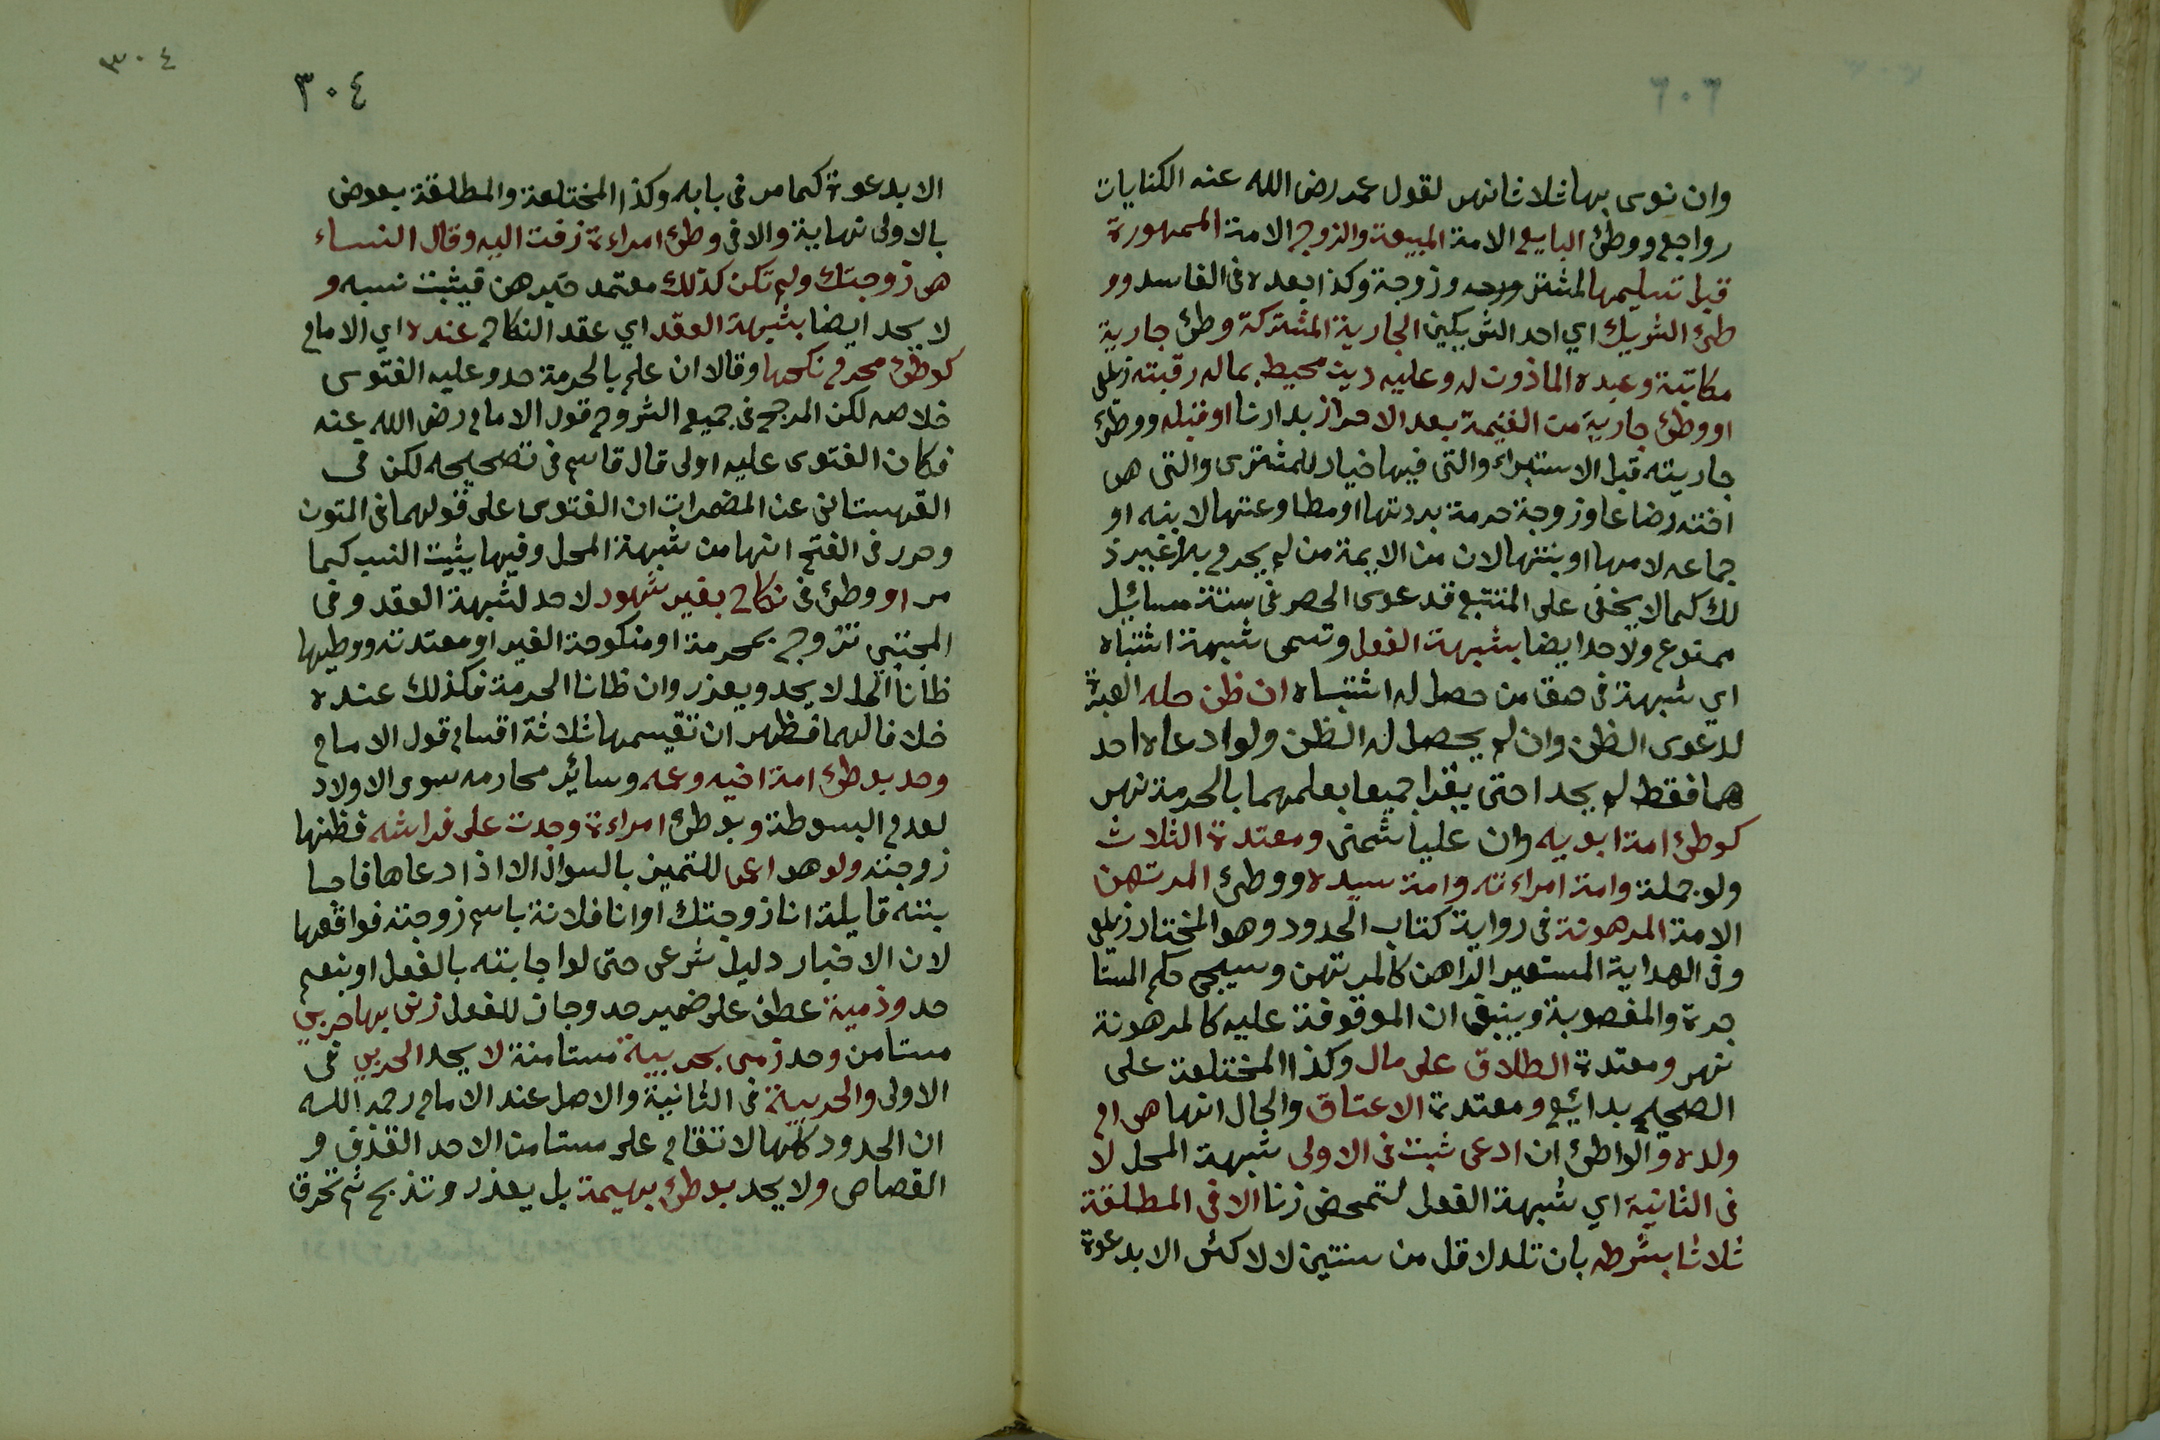 وان نوى بها ثلاثا نهر لقول عمر رضى الله عنه الكنايات
رواجع ووطئ البايع الامة المبيعة والزوج الامة الممهورة
قبل تسليمها لمشتر وزوجة وكذا بعده فى الفاسد وو
طئ الشريك اي احد الشريكين الجارية المشتركة وطئ جارية
مكاتبة وعبده الماذون له وعليه دين محيط بماله رقبته زيلعى
او ووطئ جارية من الغنيمة بعد الاحراز بدارنا او قبله ووطئ
جاريته قبل الاستبراء والتى فيها خيار للمشترى والتى هى
اخته رضاعا وزوجة حرمة بردتها او مطاوعتها لابنه او
جماعه لامها او بنتها لان من الايمة من لم يحرم به وغير ذ
لك كما لا يخفى على المتتبع قدعوى الحصر فى ستة مسائيل
ممنوع ولا حد ايضا بشبهة الفعل وتسمى شبهة اشتباه
اي شبهة فى حق من حصل له اشتباه ان ظن حله العبرة
لدعوى الظن وان لم يحصل له الظن ولو ادعاه احد
هما فقط لم يحدا حتى يقرا جميعا بعلمهما بالحرمة نهر
كوطئ امة ابويه وان عليا شمنى ومعتدة الثلاث
ولو جملة وامة امراءته وامة سيده ووطئ المرتهن
الامة المرهونة فى رواية كتاب الحدود وهو المختار زيلعى
وفى الهداية المستعير الراهن كالمرتهن وسيجى حكم المستا
جرة والمغصوبة وينبغى ان الموقوفة عليه كالمرهونة
نهر ومعتدة الطلاق على مال وكذا المختلعة على
الصحيح بدائع ومعتدة الاعتاق والحال انها هى ام
ولده والواطئ ان ادعى ثبت فى الاولى شبهة المحل لا
فى الثانية اي شبهة الفعل لتمحض زنا الا فى المطلقة
ثلاثا بشرطه بان تلد لاقل من سنتين لا لاكثر الا بدعوة
٣٠٤
٣٠٤
الا بدعوة كما مر فى بابه وكذا المختلعة والمطلقة بعوض
بالاولى نهاية والا فى وطئ امراءة زفت اليه وقال النساء
هى زوجتك ولم تكن كذلك معتمد خبرهن فيثبت نسبه و
لا يحد ايضا بشبهة العقد اي عقد النكاح عنده اي الامام
كوطئ محرم نكحها وقالا ان علم بالحرمة حد وعليه الفتوى
خلاصه لكن المرجح فى جميع الشروح قول الامام رضى الله عنه
فكان الفتوى عليه اولى قال قاسم فى تصحيحه لكن فى
القهستانى عن المضمرات ان الفتوى على قولهما فى المتون
وحرر فى الفتح انها من شبهة المحل وفيها يثبت النسب كما
مر او ووطئ فى نكاح بغير شهود لا حد لشبهة العقد وفى
المجتبى تزوج بمحرمة او منكوحة الغير او معتدته ووطيها
ظانا الحل لا يحد ويعذر وان ظانا الحرمة فكذلك عنده
خلافا لهما فظهر ان تقسيمها ثلاثة اقسام قول الامام
وحد بوطئ امة اخيه وعمه وسائر محارمه سوى الاولاد
لعدم البسوطة وبوطئ امراءة وجدت على فراشه فظنها
زوجته ولو هو اعمى للتميز بالسوال الا اذا دعاها فاجا
بته قايلة انا زوجتك او انا فلانة باسم زوجته فواقعها
لان الاخبار دليل شرعى حتى لو اجابته بالفعل او بنعم
حد وذمية عطف على ضمير حد وجاز للفعل زنى بها حربي
مستامن وحد زمى بحربية مستامنة لا يحد الحربي فى
الاولى والحربية فى الثانية والاصل عند الامام رحمه الله
ان الحدود كلها لا تقام على مستامن الا حد القذف و
القصاص ولا يحد بوطئ بهيمة بل يعذر وتذبح ثم تحرق